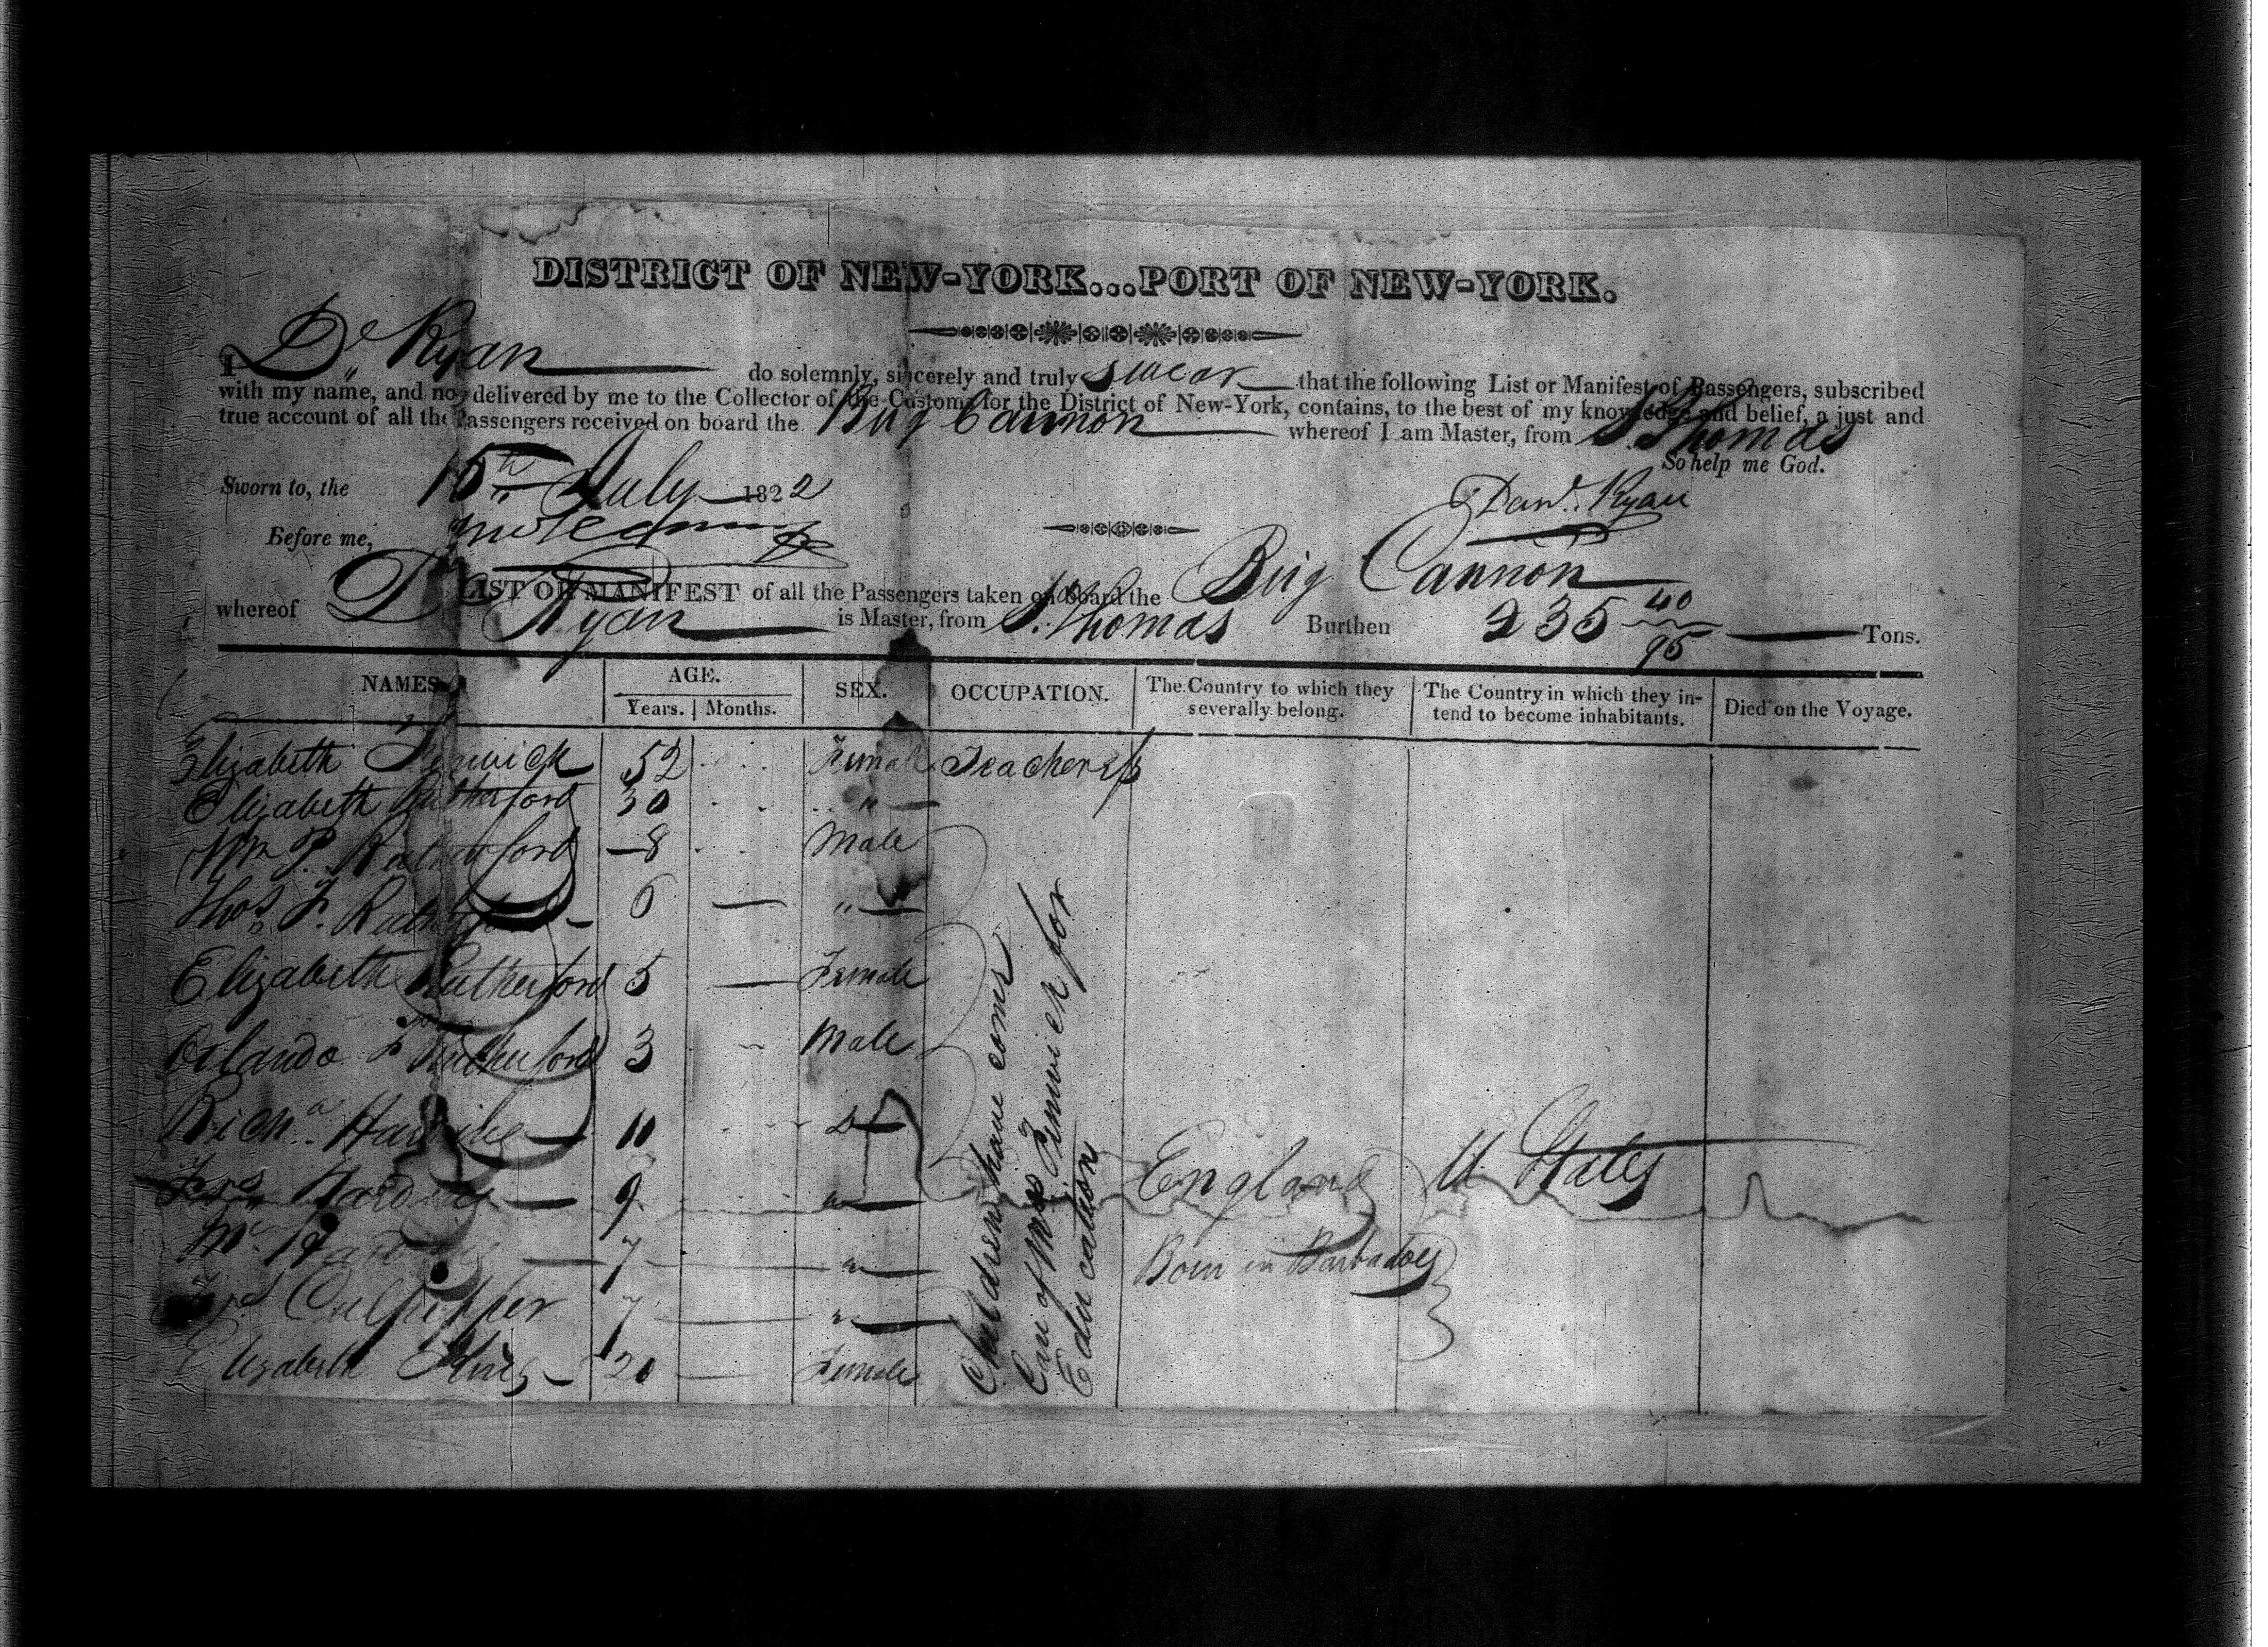 DISTRICT OF NEW-YORK...PORT OF NEW-YORK.
I Dl Ryan do solemnly, sincerely and truly swear that the following List or Manifest of Passengers, subscribed
with my name, and now delivered by me to the Collector of the Customs for the District of New-York, contains, to the best of my knowledge and belief, a just and
true account of all the Passengers received on board the Brig Cannon whereof I am Master, from St. Thomas
So help me God.
Sworn to, the 15th July 1822
Danl. Ryan
Before me,
LIST OR MANIFEST of all the Passengers taken on board the Brig Cannon
whereof Dl Ryan is Master, from St. Thomas Burthen 235 40/95 Tons.
NAMES. AGE. SEX. OCCUPATION. The Country to which they severally belong. The Country in which they intend to become inhabitants. Died on the Voyage.
Years. Months.
Elizabeth Fenwick 52 Female Teacher
Elizabeth Rutherford 30 "
Wm P. Rutherford 8 Male
Thos F. Rutherford 6 "
Elizabeth Rutherford 5 Female
Orlando F Rutherford 3 Male
Richd. 11 Do
9 "
England U States
7 "
Born in Barbadoes
Culpepper 7 "
Elizabeth King 20 Female
Children have come
Care of Mrs Fenwick for
Education